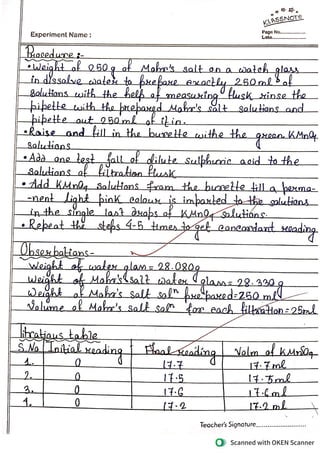 KLASSNOTE
Experiment Name :
Page No.
Date
Procedure :-
• Weight of 250g of Mohr's salt on a watch glass
in dissolve water to prepare exactly 250ml of
solutions with the help of measuring flusk rinse the
pipette with the prepared Mohr's salt solutions and
pipette out 250ml of it in.
• Raise and fill in the burette withe the green KMnO4
solutions
• Add one test fall of dilute sulphuric acid to the
solutions of filtration flusk
• Add KMnO4 solutions from the burette till a perma-
-nent light pink colour is imparted to the solutions
in the single last drops of KMnO4 solutions.
• Repeat the steps 4-5 times to get concordant reading.
Observations-
Weight of water glass = 28.080g
Weight of Mohr's salt water glass = 28.330g
Weight of Mohr's salt soln prepared = 250 ml
Volume of Mohr's salt son for each filtration = 25ml
Titrations table
S.No. Initial Reading Final Reading Volm of KMnO4
1. 0 17.7 17.7ml
2. 0 17.5 17.5ml
3. 0 17.6 17.6ml
4. 0 17.2 17.2ml
Teacher's Signature
Scanned with OKEN Scanner